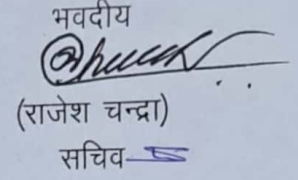 भवदीय
(राजेश चन्द्रा)
सचिव